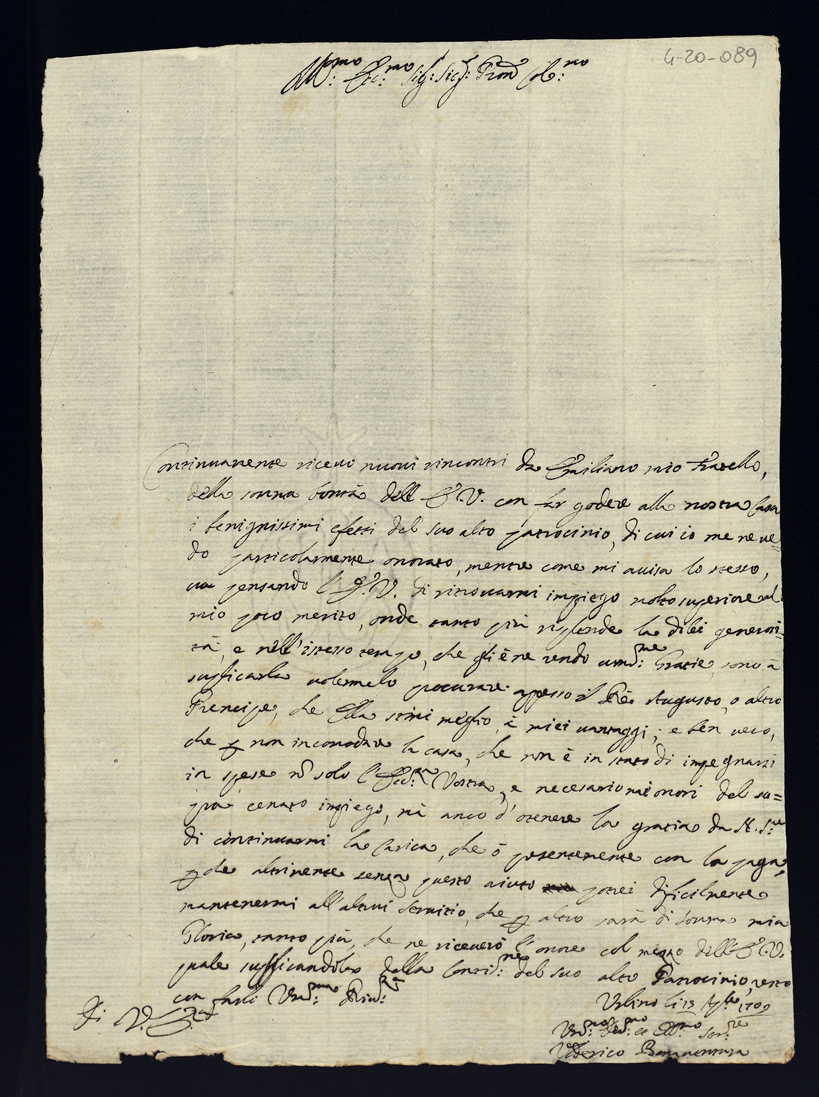 4-20-089
Ill:mo Ecc:mo Sig: Sig: Pron Col:mo
Continuamente ricevo nuovi rincontri da Emiliano mio Fratello,
della somma bontà dell'E. V. con far godere alla nostra Casa
i benignissimi effetti del suo alto patrocinio, di cui io me ne ve=
do particolarmente onorato, mentre come mi avisa lo stesso,
và pensando l'E. V. di ritrovarmi impiego molto superiore al
mio poco merito, onde tanto più risplende la di lei generosi=
tà, e nell'istesso tempo, che gliene rendo um:me Gratie, sono à
supplicarla volermelo procurare appresso il Rè Augusto, o altro
Prencipe, che Ella stimi meglio, à miei vantaggi; e ben vero,
che p non incomodare la casa, che non è in stato di impegnarsi
in spese nō solo l'Ecc:za Vostra, e necessario mi onori del su=
più cenato impiego, mà anco d'ottenere la gratia da N. S.re
di continuarmi la carica, che ò presentemente con la paga,
p che altrimente senza questo aiuto potrei dificilmente
mantenermi all'altrui servitio, che p altro sarà di somma mia
Gloria, tanto più, che ne riceverò l'onore col mezzo dell'E. V.
quale supplicandola della Conti:ne del suo alto Patrocinio, resto
con farli Um:ma Riv:za
Di V. E.
Urbino li 15 1709
Um:mo Dev:mo et Obl:mo Ser:re
Federico Bonaventura